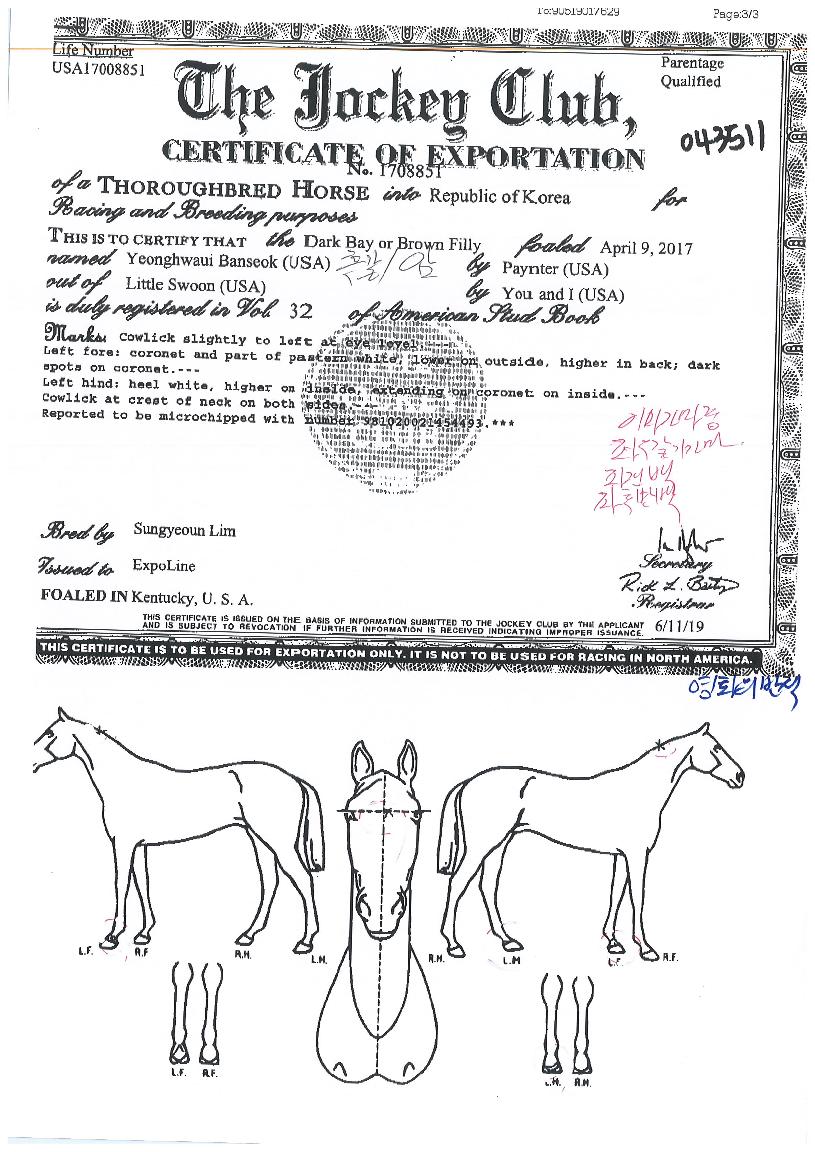 To:90519017629 Page:3/3
Life Number
USA17008851
Parentage
Qualified
The Jockey Club,
043511
CERTIFICATE OF EXPORTATION
No. 1708851
of a THOROUGHBRED HORSE into Republic of Korea for
Racing and Breeding purposes
THIS IS TO CERTIFY THAT the Dark Bay or Brown Filly foaled April 9, 2017
named Yeonghwaui Banseok (USA) 흑갈/암 by Paynter (USA)
out of Little Swoon (USA) by You and I (USA)
is duly registered in Vol. 32 of American Stud Book
Marks: Cowlick slightly to left at eye level.---
Left fore: coronet and part of pastern white, lower on outside, higher in back; dark
spots on coronet.---
Left hind: heel white, higher on inside, extending on coronet on inside.---
Cowlick at crest of neck on both sides.---
Reported to be microchipped with number 981020021454493.***
Bred by Sungyeoun Lim
Issued to ExpoLine
Secretary
Rick L. Baily
Registrar
FOALED IN Kentucky, U. S. A.
THIS CERTIFICATE IS ISSUED ON THE BASIS OF INFORMATION SUBMITTED TO THE JOCKEY CLUB BY THE APPLICANT
AND IS SUBJECT TO REVOCATION IF FURTHER INFORMATION IS RECEIVED INDICATING IMPROPER ISSUANCE. 6/11/19
THIS CERTIFICATE IS TO BE USED FOR EXPORTATION ONLY. IT IS NOT TO BE USED FOR RACING IN NORTH AMERICA.
영화의반석
L.F. R.F R.H. L.H. R.H. L.H L.F. R.F.
L.F. R.F. L.H. R.H.